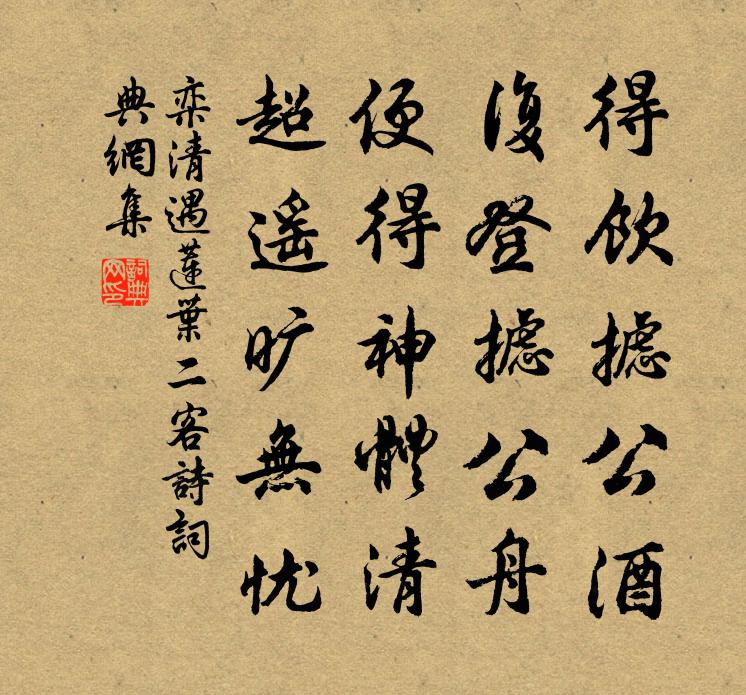 得飲摅公酒
復登摅公舟
便得神體清
超遥旷無忧
栾清遇蓮葉二客詩詞
典網集
詞典
网印